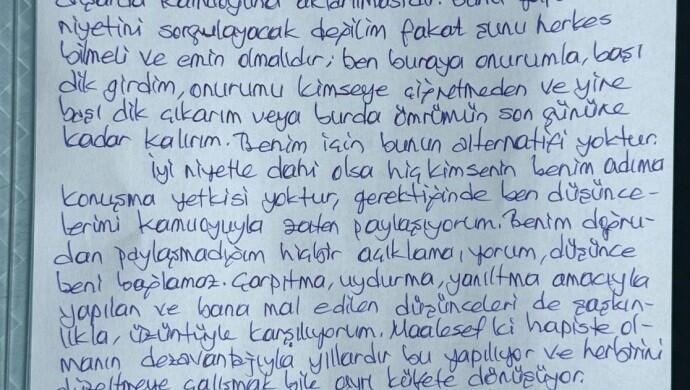 kamuoyuna aktarılmasıdır.
niyetini sorgulayacak değilim fakat şunu herkes
bilmeli ve emin olmalıdır; ben buraya onurumla, başı
dik girdim, onurumu kimseye çiğnetmeden ve yine
başı dik çıkarım veya burda ömrümün son gününe
kadar kalırım. Benim için bunun alternatifi yoktur.
İyi niyetle dahi olsa hiç kimsenin benim adıma
konuşma yetkisi yoktur, gerektiğinde ben düşünce-
lerimi kamuoyuyla zaten paylaşıyorum. Benim doğru-
dan paylaşmadığım hiçbir açıklama, yorum, düşünce
beni bağlamaz. Çarpıtma, uydurma, yanıltma amacıyla
yapılan ve bana mal edilen düşünceleri de şaşkın-
lıkla, üzüntüyle karşılıyorum. Maalesef ki hapiste ol-
manın dezavantajıyla yıllardır bu yapılıyor ve herbirini
düzeltmeye çalışmak bile ayrı külfete dönüşüyor.